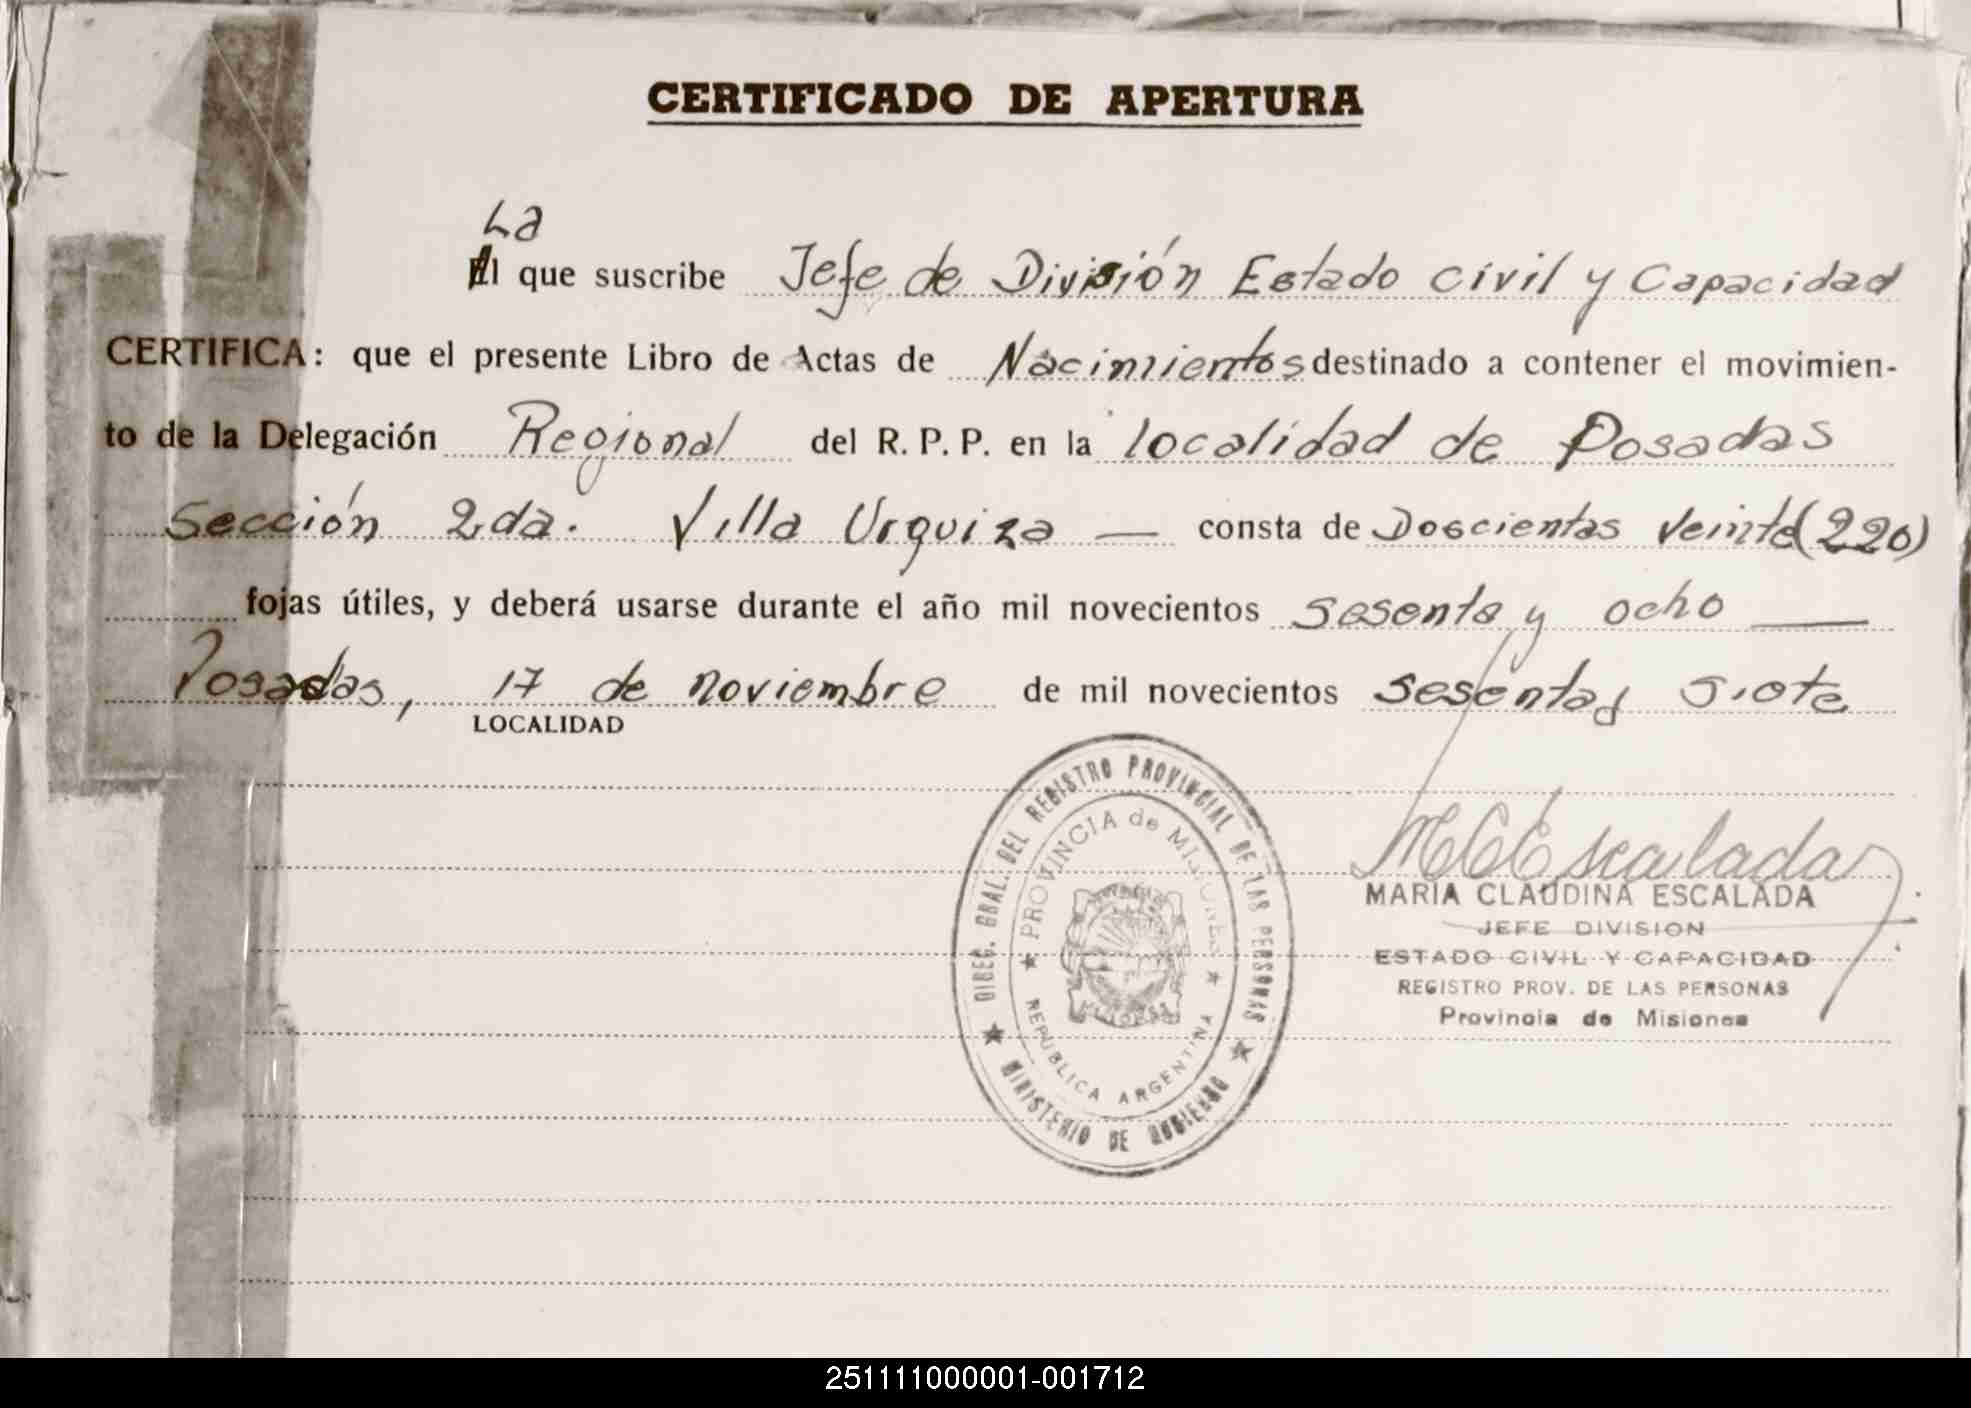 CERTIFICADO DE APERTURA
La
El que suscribe Jefe de División Estado civil y Capacidad
CERTIFICA: que el presente Libro de Actas de Nacimientos destinado a contener el movimien-
to de la Delegación Regional del R. P. P. en la localidad de Posadas
Sección 2da. Villa Urquiza — consta de Doscientas Veinte (220)
fojas útiles, y deberá usarse durante el año mil novecientos sesenta y ocho —
Posadas, 17 de noviembre de mil novecientos sesenta y siete
LOCALIDAD
DIREC. GRAL. DEL REGISTRO PROVINCIAL DE LAS PERSONAS
★ MINISTERIO DE GOBIERNO ★
★ PROVINCIA de MISIONES ★
REPUBLICA ARGENTINA
MISIONES
M C Escalada
MARIA CLAUDINA ESCALADA
JEFE DIVISION
ESTADO CIVIL Y CAPACIDAD
REGISTRO PROV. DE LAS PERSONAS
Provincia de Misiones
251111000001-001712